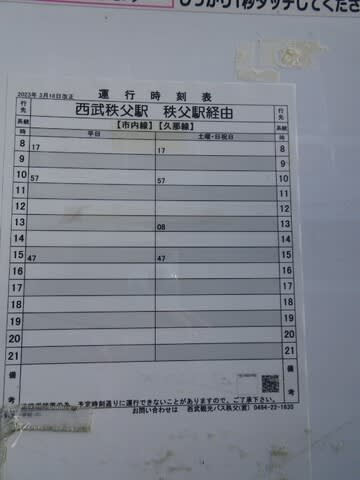 しっかり1秒タッチしてくださ
2023年 3月18日改正 運行時刻表
行先 西武秩父駅 秩父駅経由 行先
系統 【市内線】【久那線】 系統
時 平日 土曜・日祝日 時
8 17 17 8
9 9
10 57 57 10
11 11
12 12
13 08 13
14 14
15 47 47 15
16 16
17 17
18 18
19 19
20 20
21 21
備考 備考
予定時刻通りに運行できないことがありますので、ご了承下さい。
お問い合わせは 西武観光バス秩父(営) 0494-22-1635